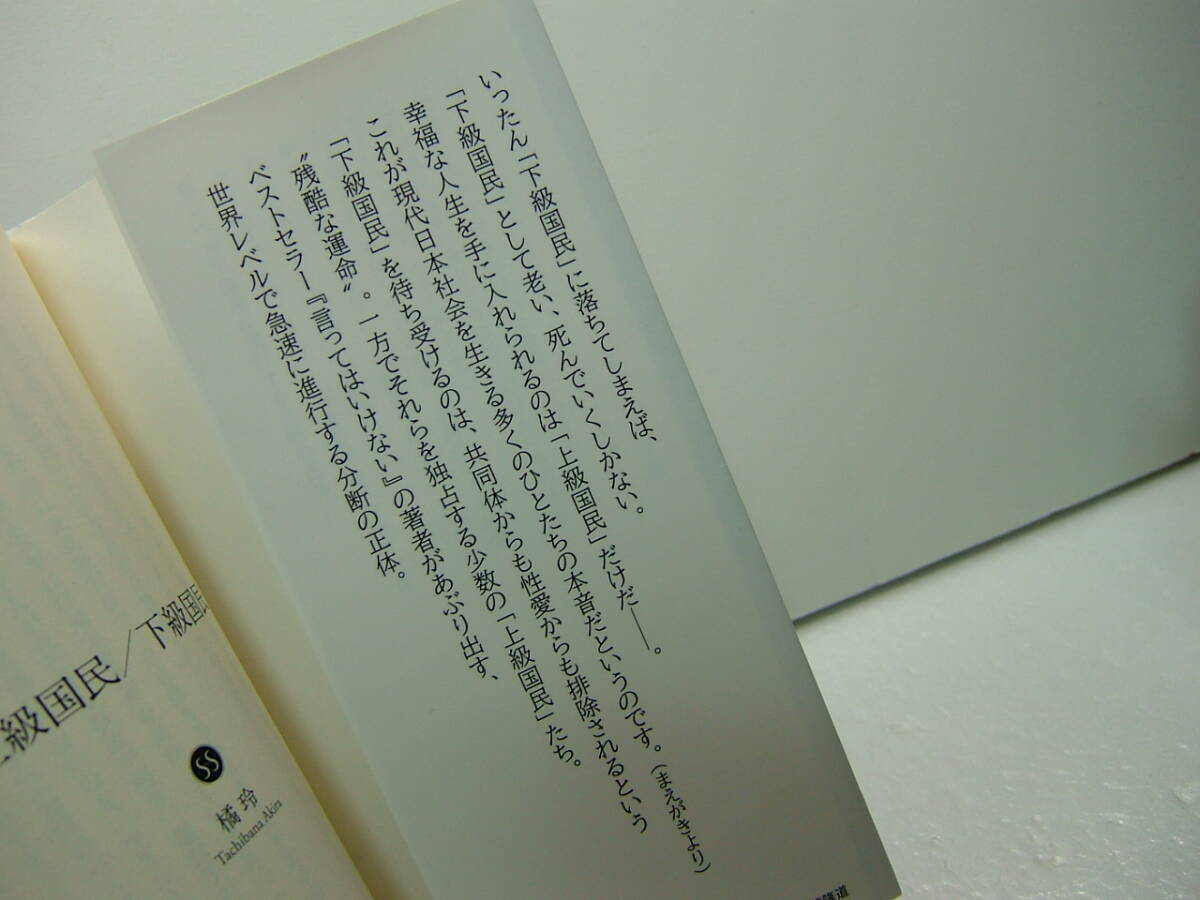 いったん「下級国民」に落ちてしまえば、
「下級国民」として老い、死んでいくしかない。
幸福な人生を手に入れられるのは「上級国民」だけだ――。
これが現代日本社会を生きる多くのひとたちの本音だというのです。（まえがきより）
「下級国民」を待ち受けるのは、共同体からも性愛からも排除されるという
〝残酷な運命〟。一方でそれらを独占する少数の「上級国民」たち。
ベストセラー『言ってはいけない』の著者があぶり出す、
世界レベルで急速に進行する分断の正体。
級国民／下級国民
SS
橘 玲
Tachibana Akira
道